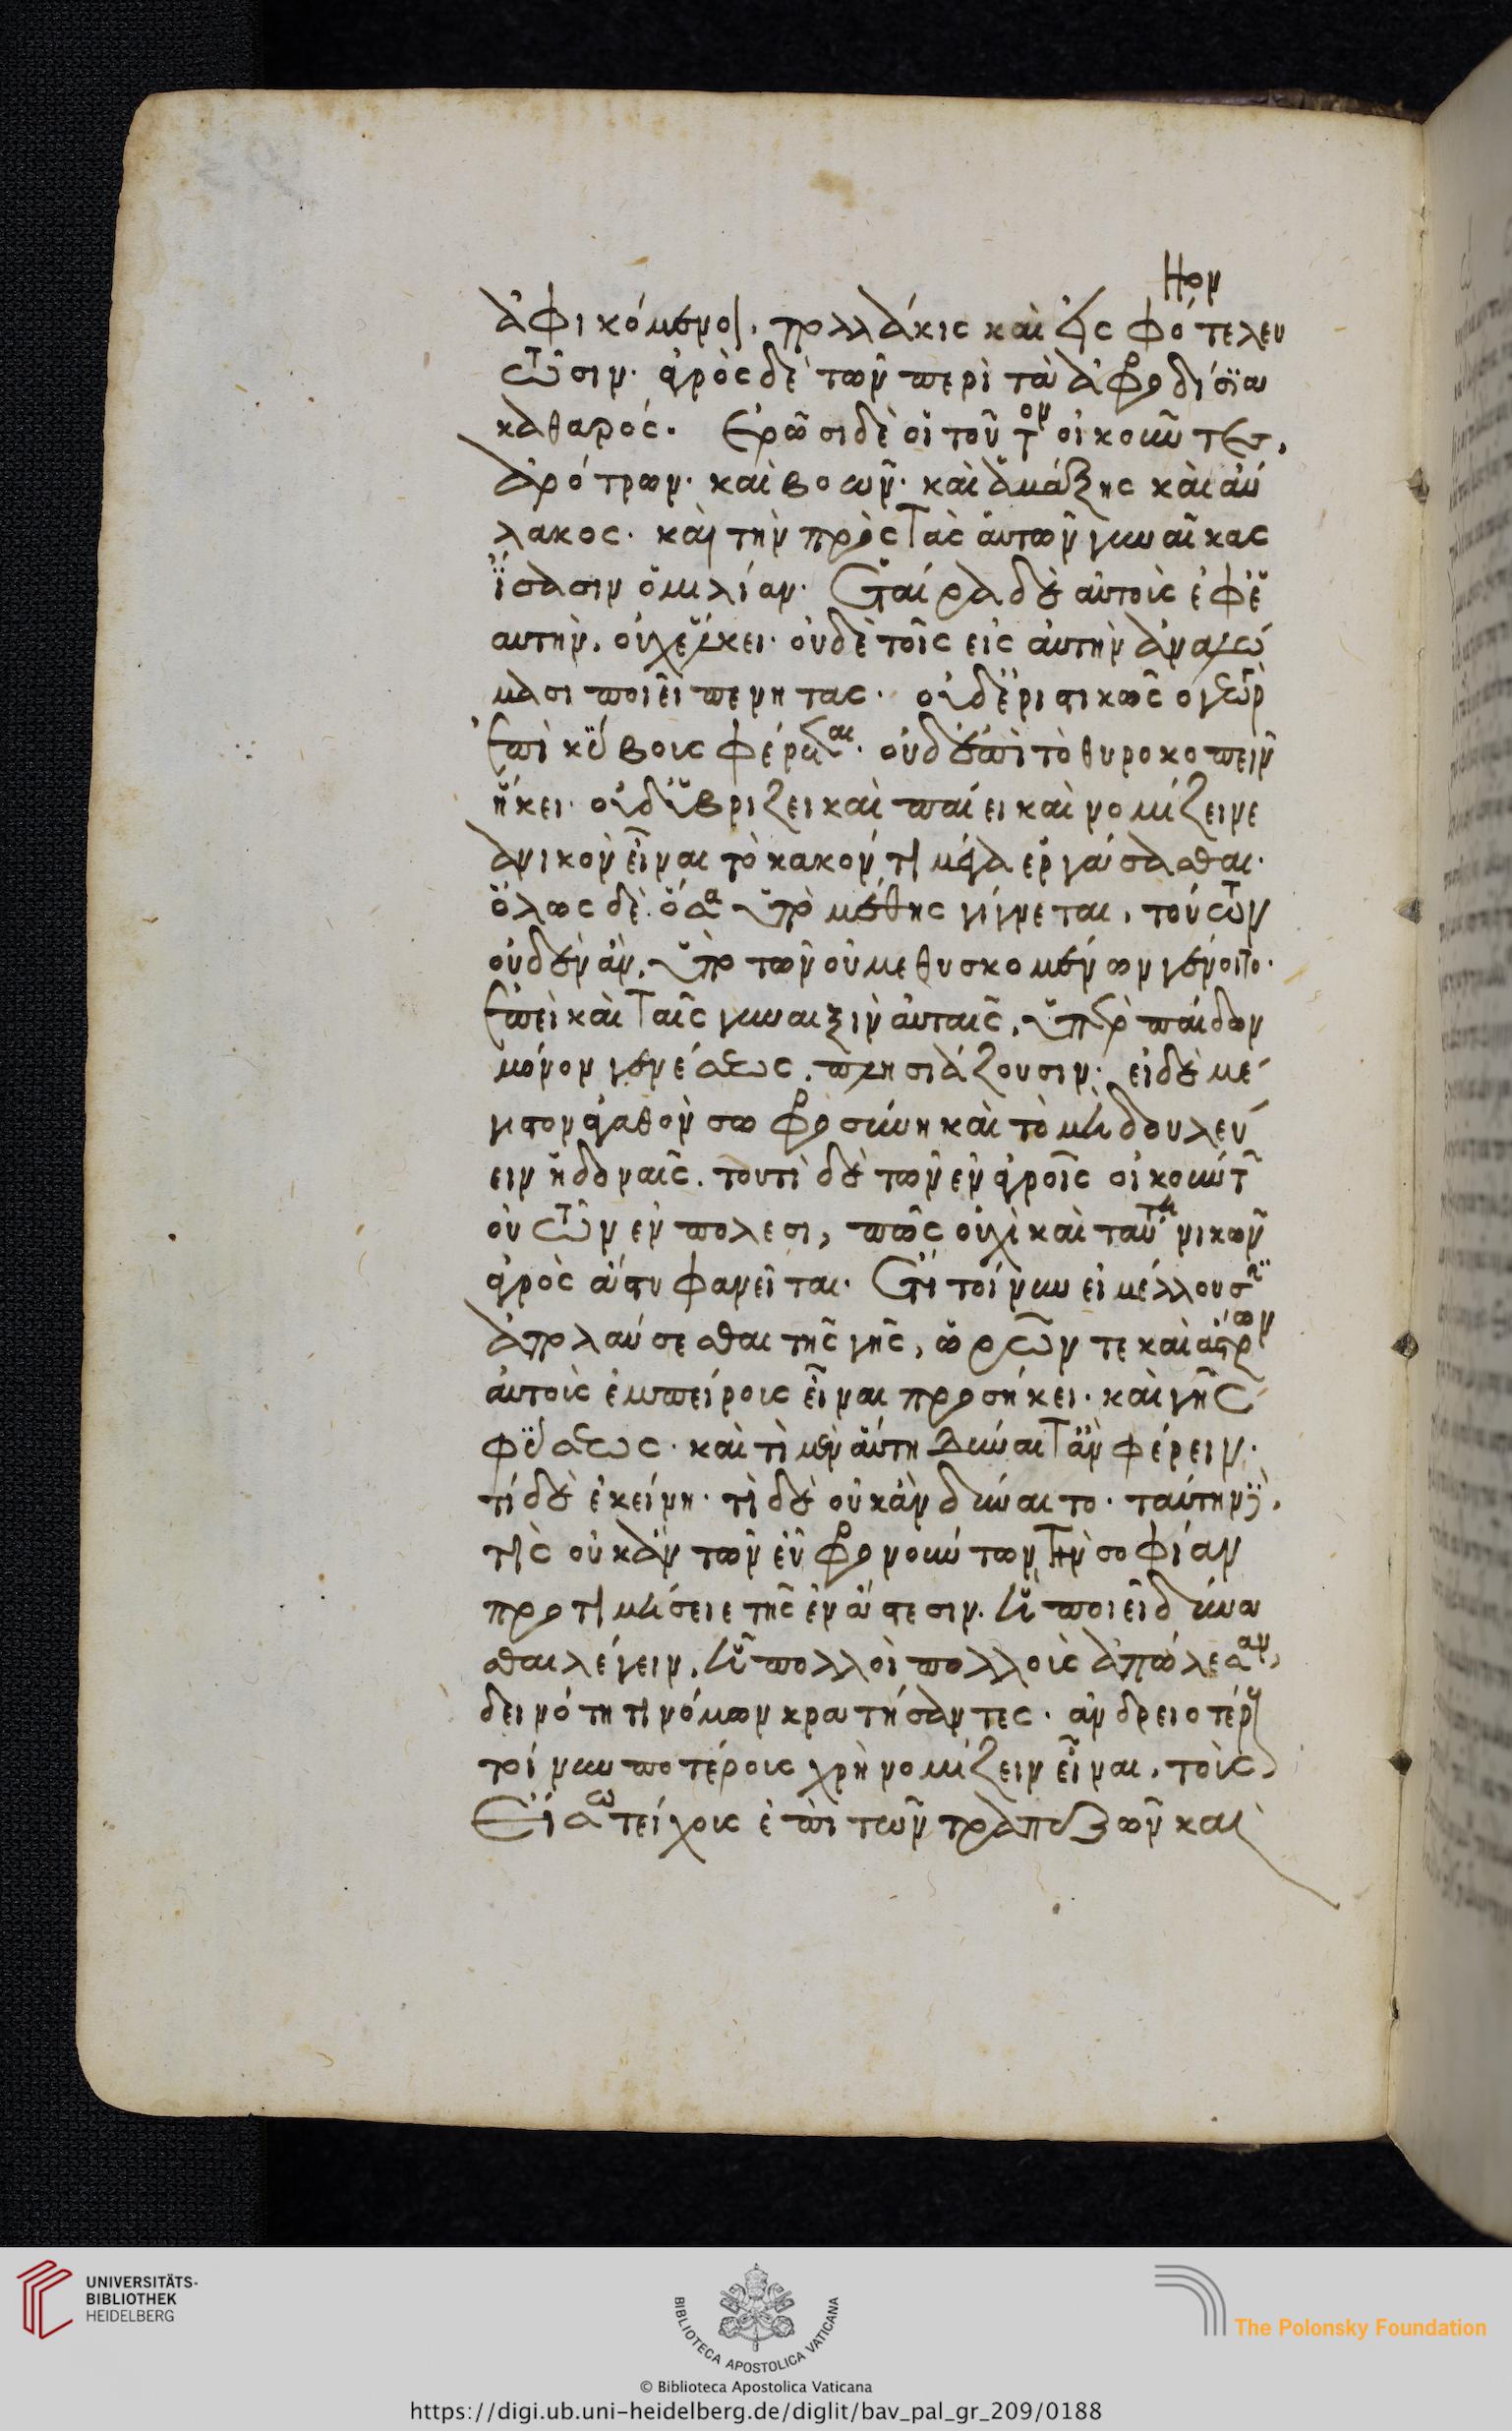 ἀφικόμενοι. πολλάκις καὶ εἰς φό τελευ
τῶσιν. ἀγρὸς δὲ τῶν περὶ τὰ ἀφροδίσια
καθαρός. Ἐρῶσι δὲ οἱ τοῦτον οἰκοῦντες,
ἀρότρων. καὶ βοῶν. καὶ ἁμάξης καὶ αὔ
λακος. καὶ τὴν πρὸς τὰς αὑτῶν γυναῖκας
ἴσασιν ὁμιλίαν. Ἑταίρα δὲ αὐτοῖς ἐφ' ἑ
αυτὴν, οὐχ ἕλκει. οὐδὲ τοῖς εἰς αὐτὴν ἀναλώ
μασι ποιεῖ πένητας. οὐδ' ἐριστικῶς ὁ γεωρ
ἐπὶ κύβοις φέρεται. οὐδ' ἐπὶ τὸ θυροκοπεῖν
ἥκει. οὐδ' ὑβρίζει καὶ παίει καὶ νομίζει νε
ανικὸν εἶναι τὸ κακόν τι μέγα ἐργάσασθαι.
ὅλως δὲ. ὅσα ὑπὸ μέθης γίγνεται, τούτων
οὐδὲν ἂν, ὑπὸ τῶν οὐ μεθυσκομένων γένοιτο.
ἐπεὶ καὶ ταῖς γυναιξὶν αὐταῖς, ὑπὲρ παίδων
μόνον γενέσεως. πλησιάζουσιν. εἰ δὲ μέ
γιστον ἀγαθὸν σωφροσύνη καὶ τὸ μὴ δουλεύ
ειν ἡδοναῖς. τουτὶ δὲ τῶν ἐν ἀγροῖς οἰκούντων
οὐ τῶν ἐν πόλεσι, πῶς οὐχὶ καὶ ταύτῃ νικῶν
ἀγρὸς ἄστυ φανεῖται. Ἔτι τοίνυν εἰ μέλλουσιν
ἀπολαύσεσθαι τῆς γῆς, ὡρῶν τε καὶ ἄστρων
αὐτοῖς ἐμπείροις εἶναι προσήκει. καὶ γῆς
φύσεως. καὶ τί μὲν αὕτη δύναιτ' ἂν φέρειν.
τί δὲ ἐκείνη. τί δὲ οὐκ ἂν δύναιτο. ταύτην
τίς οὐκ ἂν τῶν εὖ φρονούντων τὴν σοφίαν
προτιμήσειε τῆς ἐν ἄστεσιν. ἣ ποιεῖ δύνα
σθαι λέγειν. ᾗ πολλοὶ πολλοὺς ἀπώλεσαν,
δεινότητι νόμων κρατήσαντες. ἀνδρειοτέρους
τοίνυν ποτέρους χρὴ νομίζειν εἶναι, τοὺς
Εἴσω τείχους ἐπὶ τῶν τραπεζῶν καὶ
UNIVERSITÄTS-
BIBLIOTHEK
HEIDELBERG
BIBLIOTECA APOSTOLICA VATICANA
The Polonsky Foundation
© Biblioteca Apostolica Vaticana
https://digi.ub.uni-heidelberg.de/diglit/bav_pal_gr_209/0188